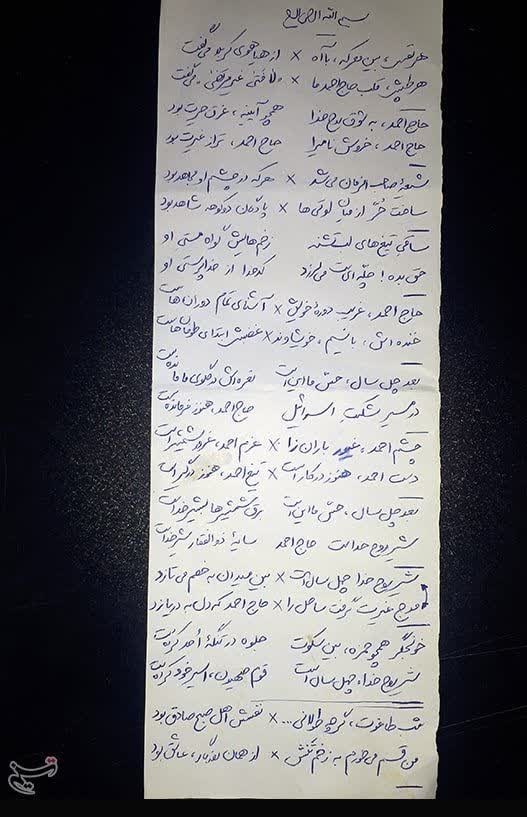 بسم الله الرحمن الرحیم
هر نفس، بین معرکه، با آه × از هیاهوی کربلا می‌گفت
هر طپش، قلب حاج احمد ما × «لافتی غیر مرتضی» می‌گفت
حاج احمد، به شوق روح خدا همچو آیینه، غرق حیرت بود
حاج احمد، خروش نامیرا حاج احمد، تراز غیرت بود
شیعهٔ صاحب الزمان می‌شد × هر که در چشم او مجاهد بود
ساخت حُرّ از میان لوتی‌ها × پادگان دوکوهه شاهد بود
ساقی تیغ‌های لب تشنه زخم‌هایش گواه مستی او
حق بده! چلّه‌ای ست می‌لرزد کدخدا از خداپرستی او
حاج احمد، غریب دورهٔ خویش × آشنای تمام دوران‌هاست
خنده‌اش، با نسیم، خویشاوند × غضبش ابتدای طوفان‌هاست
بعد چل سال، حسّ ما این است نعره‌اش در گلوی ما مانده‌ست
در مسیر شکست اسرائیل حاج احمد، هنوز فرمانده‌ست
چشم احمد، غیور باران‌زا × عزم احمد، غرور شمشیر است
دست احمد، هنوز در کار است × تیغ احمد، هنوز درگیر است
بعد چل سال، حسّ ما این است برق شمشیرها بشیر خداست
شیر روح خداست حاج احمد سایهٔ ذوالفقار شیر خداست
شیر روح خدا چهل سال است × بین میدان به خصم می‌تازد
موج غیرت گرفت ساحل را × حاج احمد که دل به دریا زد
خون‌جگر همچو حمزه، بین سکوت جلوه در تنگهٔ اُحد کرده‌ست
شیر روح خدا، چهل سال است قوم صهیون، اسیر خود کرده‌ست
شب طاغوت، گرچه طولانی... × نفسش اهل صبح صادق بود
من قسم می‌خورم به زخم تنش × از همان روزگار، عاشق بود
تسنیم